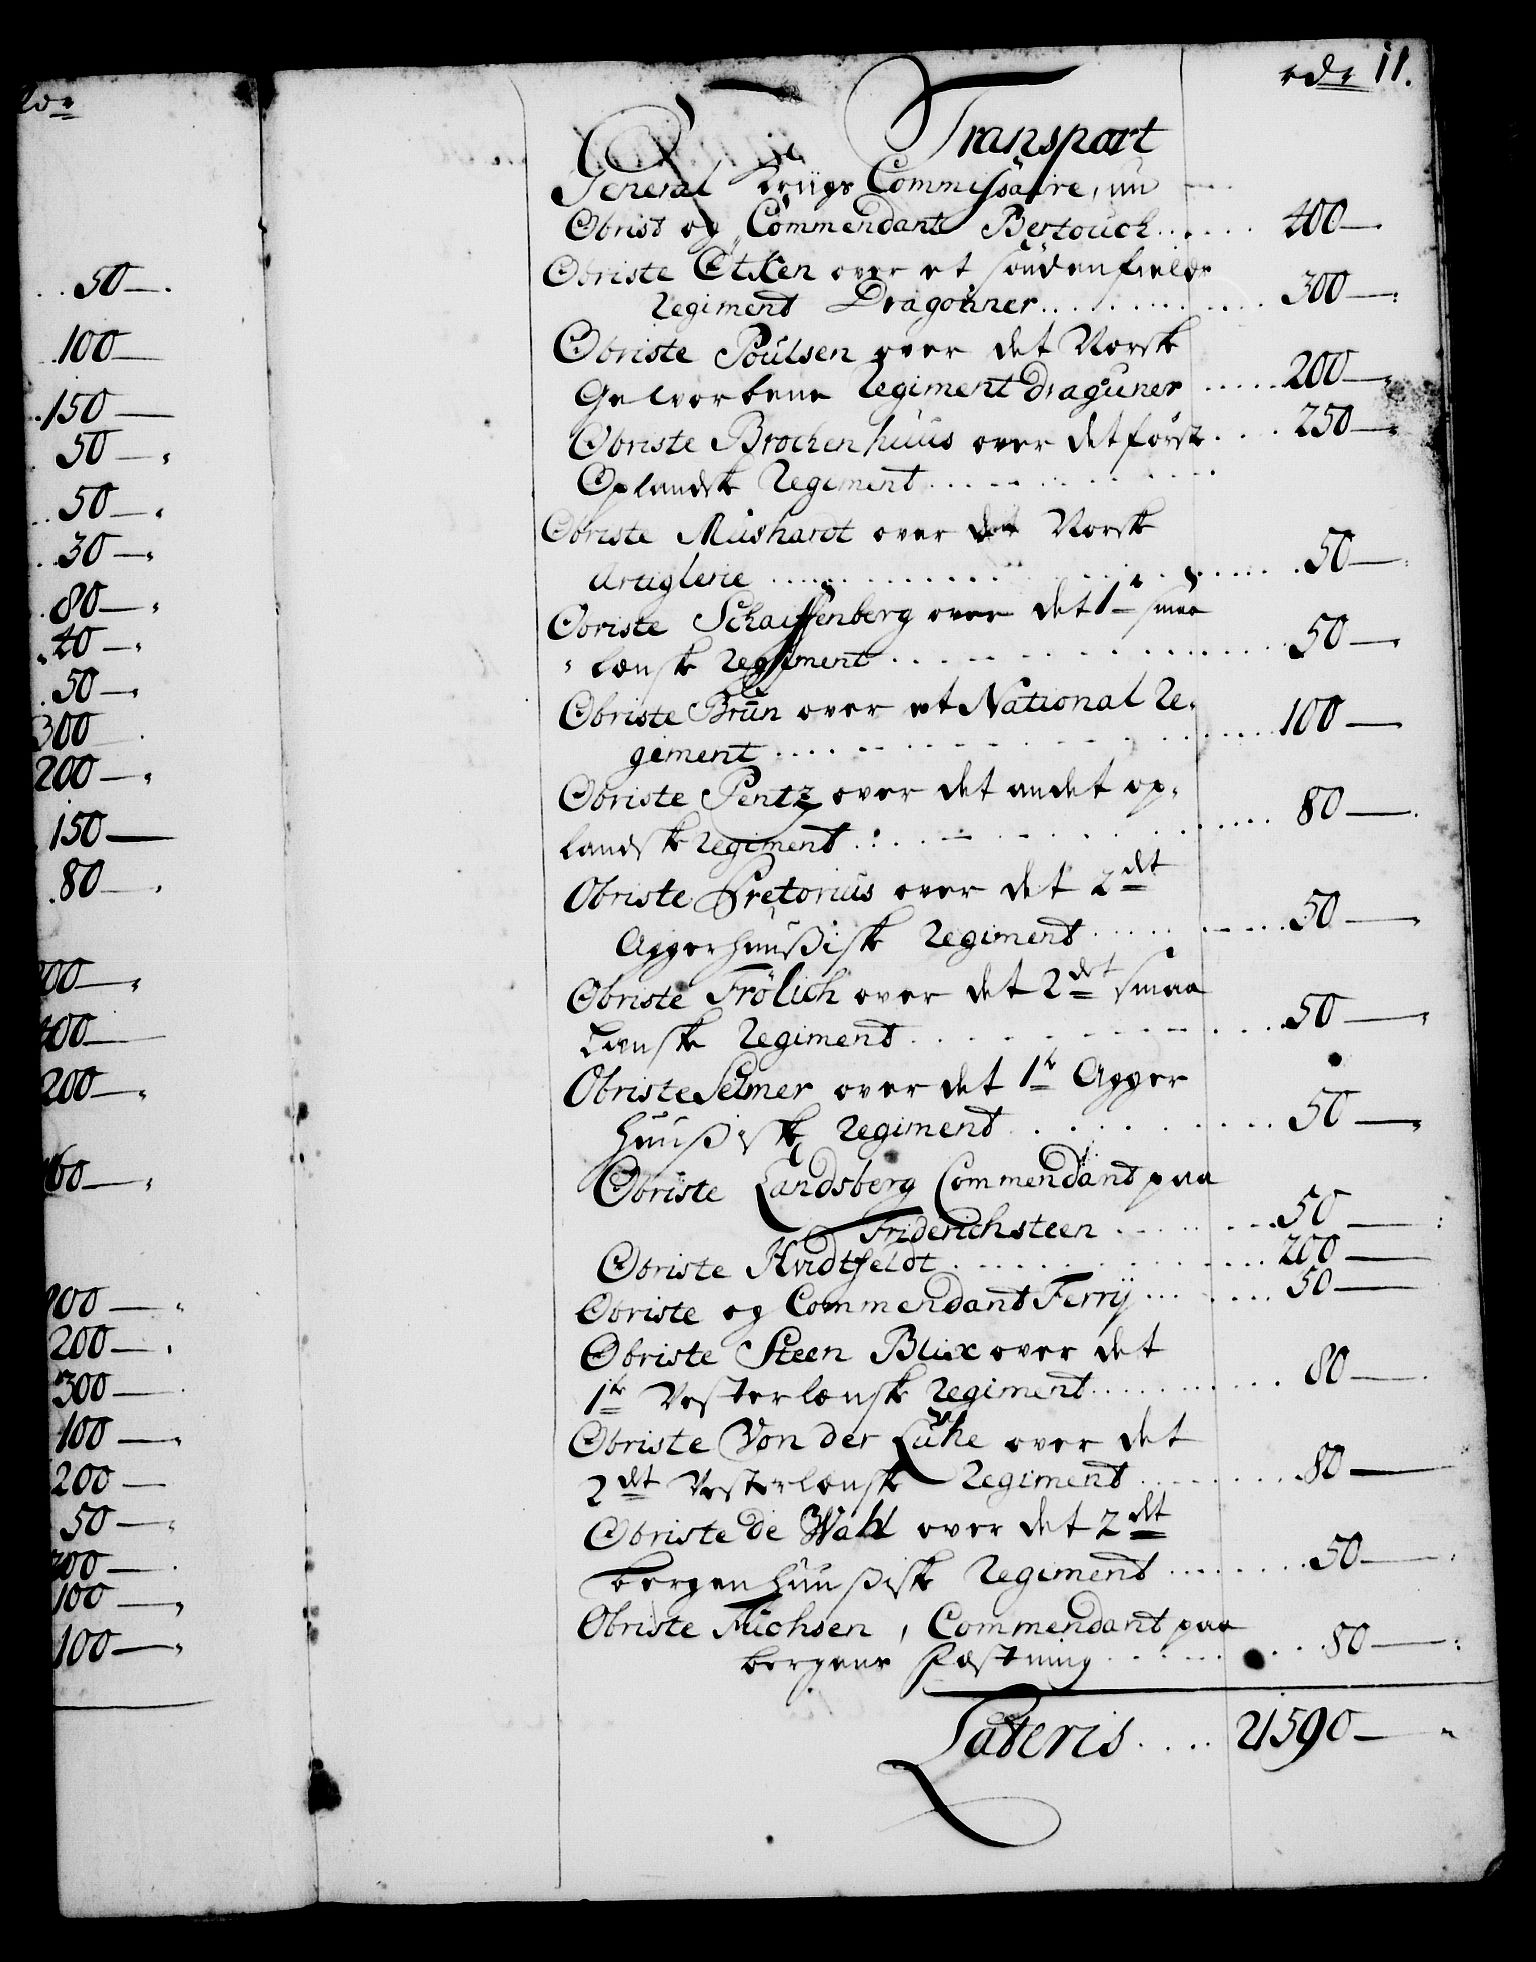 50
100
150
50
50
30
80
40
50
300
200
150
80
200
60
200
300
100
200
50
100
100
rdr 11.
Transport
General Kriigs Commissaire, nu
Obrist og Commendant Bertouch...... 400
Obriste Etken over et söndenfields
Regiment Dragouner............ 300
Obriste Poulsen over det Norske
Gevorbene Regiment Draguner ..... 200
Obriste Brochenhuus over det første.... 250
Oplandske Regiment..............
Obriste Mushardt over det Norske
Artiglerie .................. 50
Obriste Schaiffenberg over det 1te smaa
lænske Regiment.............. 50
Obriste Brun over et National Re-
giment.................. 100
Obriste Pentz over det andet op-
landske Regiment............... 80
Obriste Pretorius over det 2det
Aggerhuusiske Regiment.......... 50
Obriste Frölich over det 2det smaa
Lænske Regiment.............. 50
Obriste Selmer over det 1te Agger
huusiske Regiment............ 50
Obriste Landsberg Commendant paa
Friderichsteen.......... 50
Obriste Hvidtfeldt.............. 200
Obriste og Commendant Ferrÿ........ 50
Obriste Steen Blix over det
1te Vesterlænske Regiment........... 80
Obriste Von der Lühe over det
2det Vesterlænske Regiment......... 80
Obriste de Wahl over det 2det
bergenhuusiske Regiment......... 50
Obriste Fuchsen, Commendant paa
bergens Fæstning........... 80
Lateris.... 21590